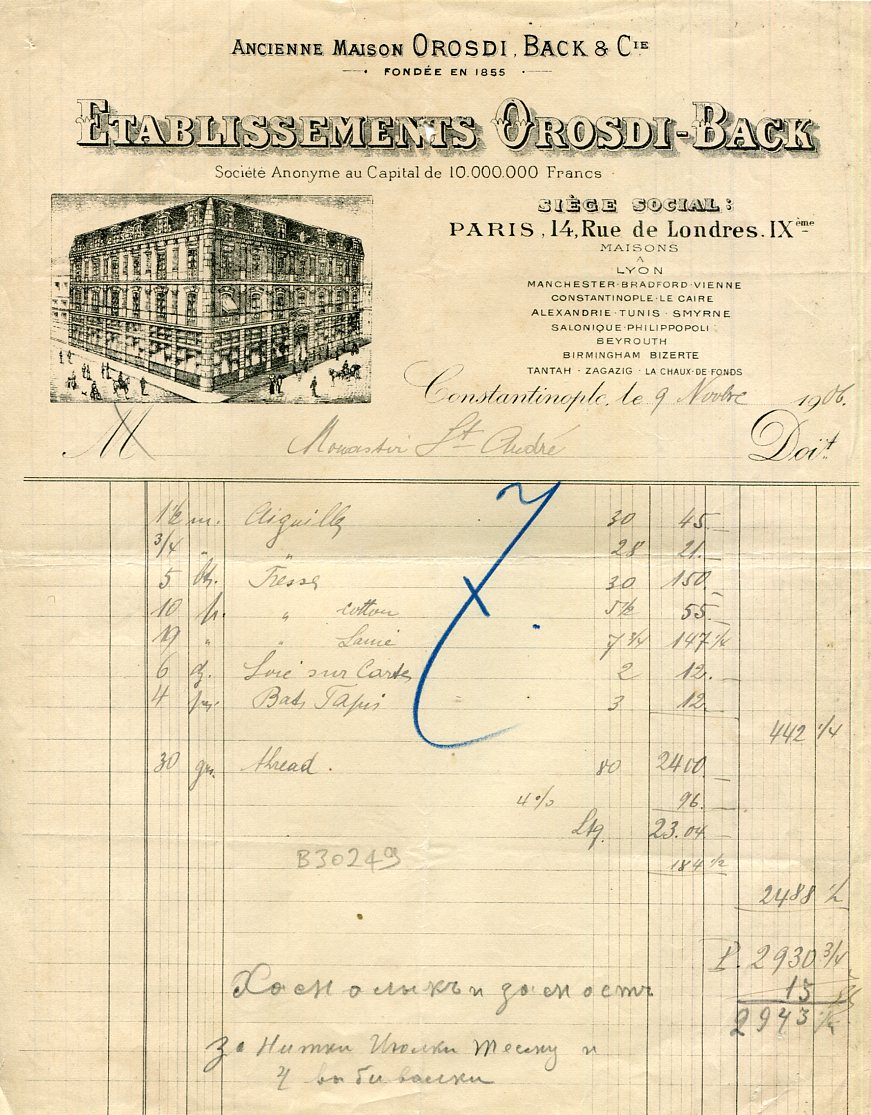 ANCIENNE MAISON OROSDI, BACK & CIE
FONDÉE EN 1855
ETABLISSEMENTS OROSDI-BACK
Société Anonyme au Capital de 10.000.000 Francs
SIÈGE SOCIAL:
PARIS, 14, Rue de Londres. IXème
MAISONS
A
LYON
MANCHESTER·BRADFORD·VIENNE
CONSTANTINOPLE·LE CAIRE
ALEXANDRIE·TUNIS·SMYRNE
SALONIQUE·PHILIPPOPOLI
BEYROUTH
BIRMINGHAM BIZERTE
TANTAH · ZAGAZIG · LA CHAUX-DE-FONDS
Constantinople, le 9 Novbre 1906.
M Monastir St André Doit
1½ m. Aiguilles 30 45
3/4 " " 28 21
5 Tresses 30 150
10 p. " cotton 5½ 55
19 " " 7 3/4 147 1/4
6 dz. Soie sur Cartes 2 12
4 Tapis 3 12
442 1/4
30 gr. thread 80 2400
4% 96
Ltq. 23.04
184 ½
2488 ½
P. 2930 3/4
13
2943
B30249
за Нитки Иголки Тесму и
4